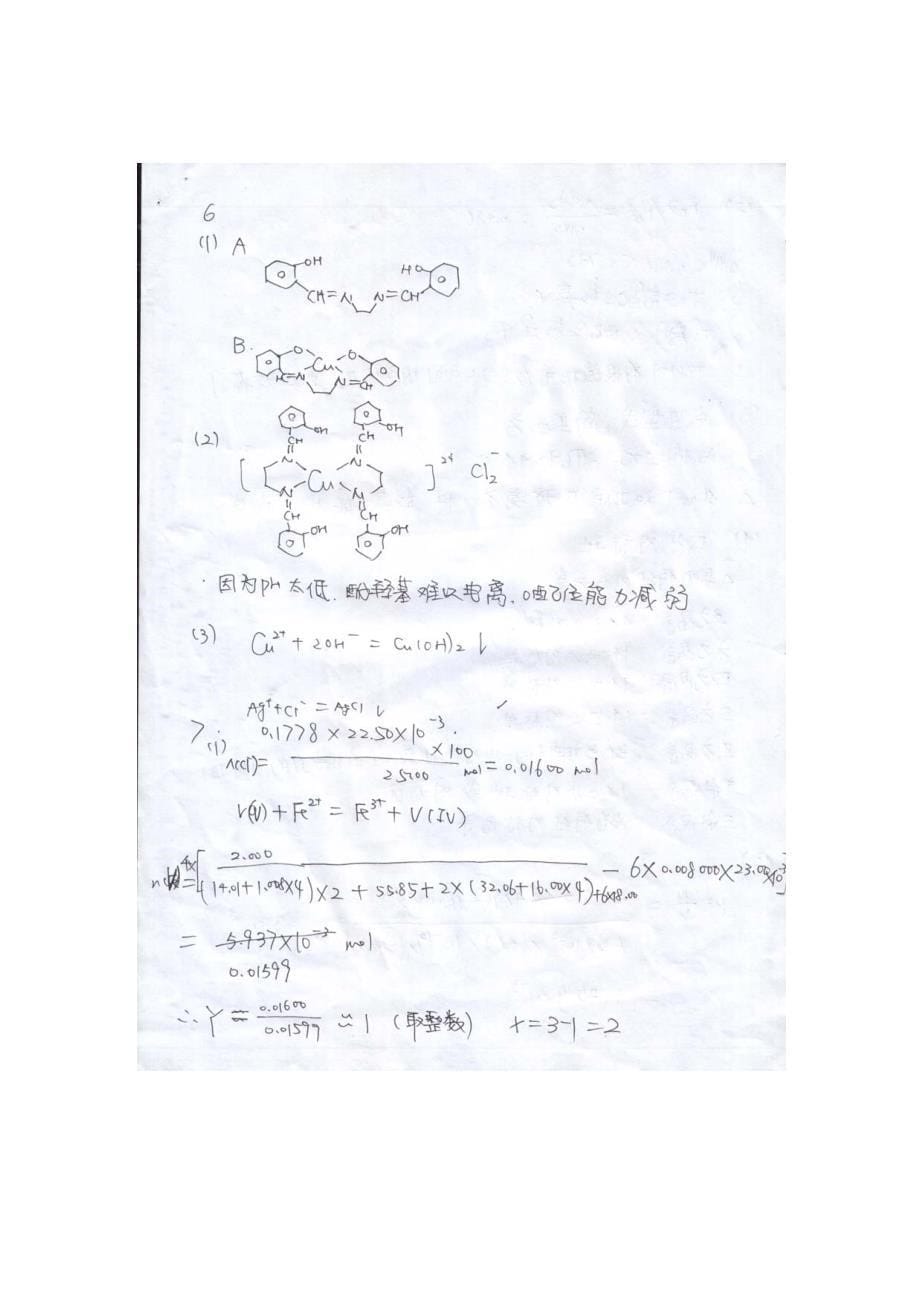 6
(1) A
OH HO
CH=N N=CH
B.
O Cu O
H=N N=CH
OH OH
CH CH
(2) N N
[ Cu ]²⁺ Cl₂⁻
N N
CH CH
OH OH
因为pH太低.酚羟基难以电离.配位能力减弱
(3) Cu²⁺ + 2OH⁻ = Cu(OH)₂↓
Ag⁺+Cl⁻ = AgCl↓
7. (1) n(Cl)= 0.1778×22.50×10⁻³ ×100 / 25.00 mol = 0.01600 mol
V(V) + Fe²⁺ = Fe³⁺ + V(IV)
4×[ 2.000 / (14.01+1.008×4)×2 + 55.85+2×(32.06+16.00×4)+6×18.00 − 6×0.008000×23.00×10⁻³]
= 5.937×10⁻³ mol
0.01599
∴ Y = 0.01600 / 0.01599 ≈ 1 (取整数) x=3-1=2